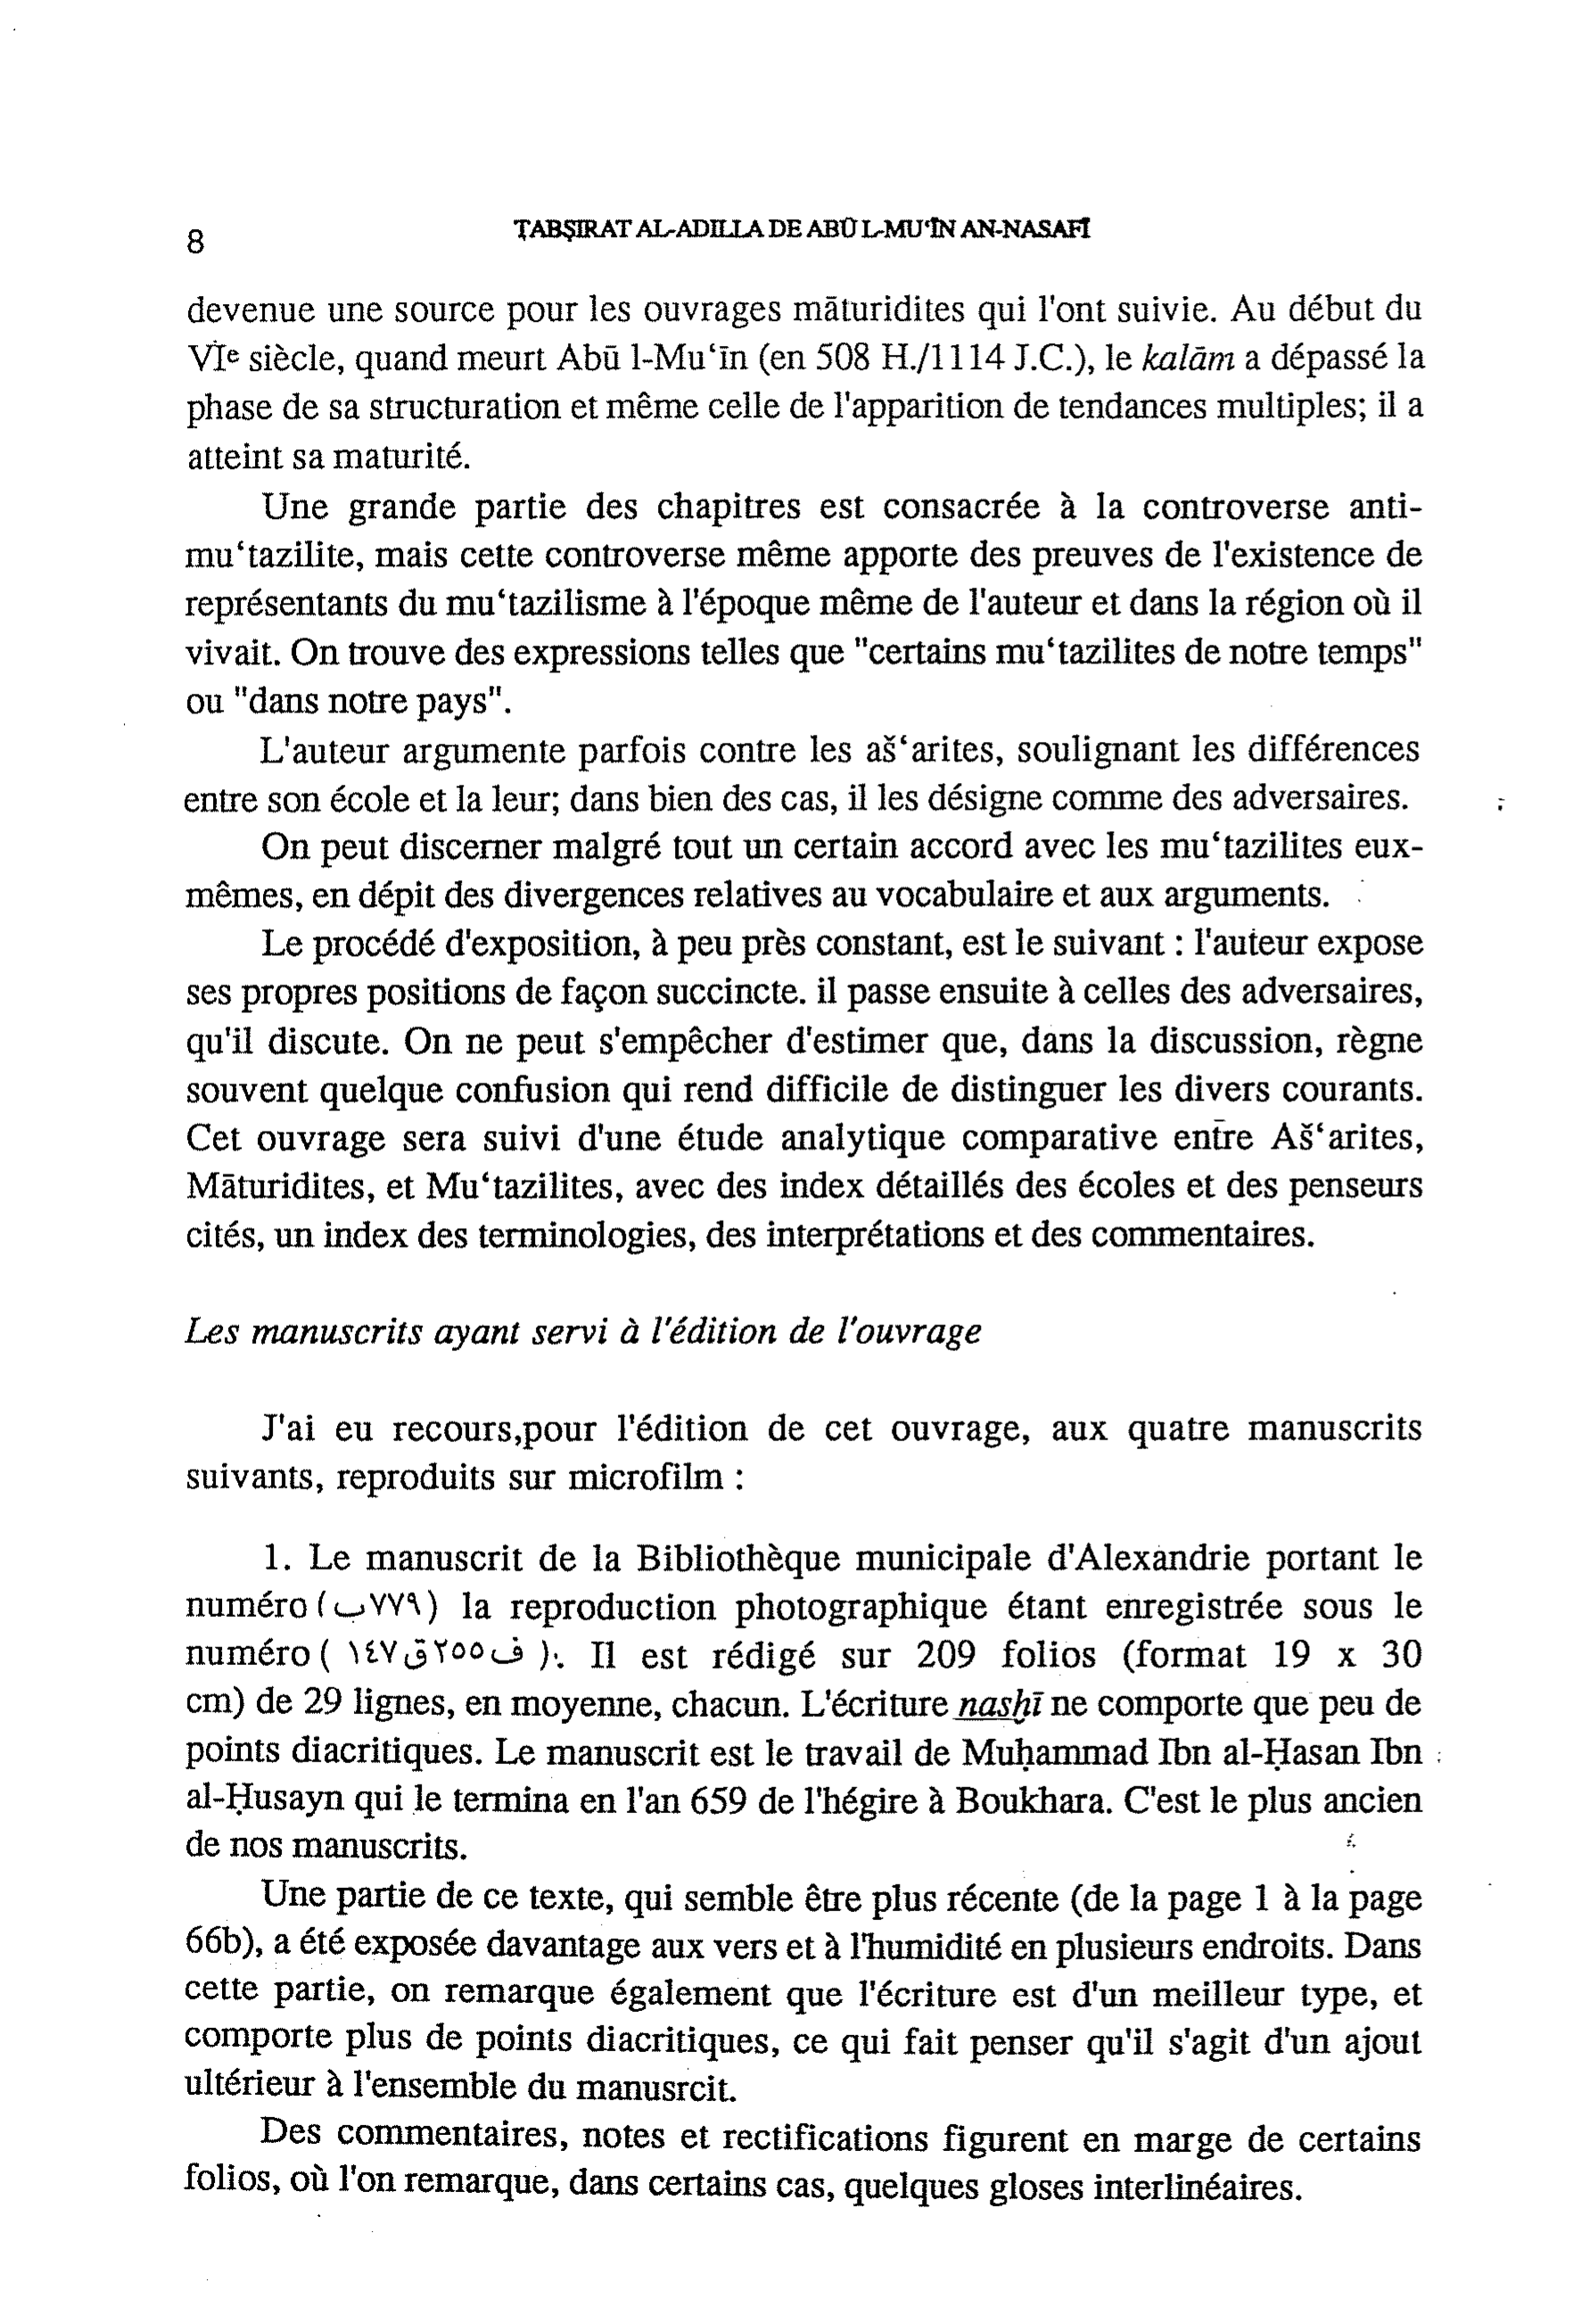 8
ṬABṢIRAT AL-ADILLA DE ABŪ L-MU‘ĪN AN-NASAFĪ
devenue une source pour les ouvrages māturidites qui l'ont suivie. Au début du
VIe siècle, quand meurt Abū l-Mu‘īn (en 508 H./1114 J.C.), le kalām a dépassé la
phase de sa structuration et même celle de l'apparition de tendances multiples; il a
atteint sa maturité.
Une grande partie des chapitres est consacrée à la controverse anti-
mu‘tazilite, mais cette controverse même apporte des preuves de l'existence de
représentants du mu‘tazilisme à l'époque même de l'auteur et dans la région où il
vivait. On trouve des expressions telles que "certains mu‘tazilites de notre temps"
ou "dans notre pays".
L'auteur argumente parfois contre les aš‘arites, soulignant les différences
entre son école et la leur; dans bien des cas, il les désigne comme des adversaires.
On peut discerner malgré tout un certain accord avec les mu‘tazilites eux-
mêmes, en dépit des divergences relatives au vocabulaire et aux arguments.
Le procédé d'exposition, à peu près constant, est le suivant : l'auteur expose
ses propres positions de façon succincte. il passe ensuite à celles des adversaires,
qu'il discute. On ne peut s'empêcher d'estimer que, dans la discussion, règne
souvent quelque confusion qui rend difficile de distinguer les divers courants.
Cet ouvrage sera suivi d'une étude analytique comparative entre Aš‘arites,
Māturidites, et Mu‘tazilites, avec des index détaillés des écoles et des penseurs
cités, un index des terminologies, des interprétations et des commentaires.
Les manuscrits ayant servi à l'édition de l'ouvrage
J'ai eu recours,pour l'édition de cet ouvrage, aux quatre manuscrits
suivants, reproduits sur microfilm :
1. Le manuscrit de la Bibliothèque municipale d'Alexandrie portant le
numéro (٧٧٩ب) la reproduction photographique étant enregistrée sous le
numéro ( ف٢٥٥ق١٤٧ ). Il est rédigé sur 209 folios (format 19 x 30
cm) de 29 lignes, en moyenne, chacun. L'écriture nasḫī ne comporte que peu de
points diacritiques. Le manuscrit est le travail de Muḥammad Ibn al-Ḥasan Ibn
al-Ḥusayn qui le termina en l'an 659 de l'hégire à Boukhara. C'est le plus ancien
de nos manuscrits.
Une partie de ce texte, qui semble être plus récente (de la page 1 à la page
66b), a été exposée davantage aux vers et à l'humidité en plusieurs endroits. Dans
cette partie, on remarque également que l'écriture est d'un meilleur type, et
comporte plus de points diacritiques, ce qui fait penser qu'il s'agit d'un ajout
ultérieur à l'ensemble du manusrcit.
Des commentaires, notes et rectifications figurent en marge de certains
folios, où l'on remarque, dans certains cas, quelques gloses interlinéaires.